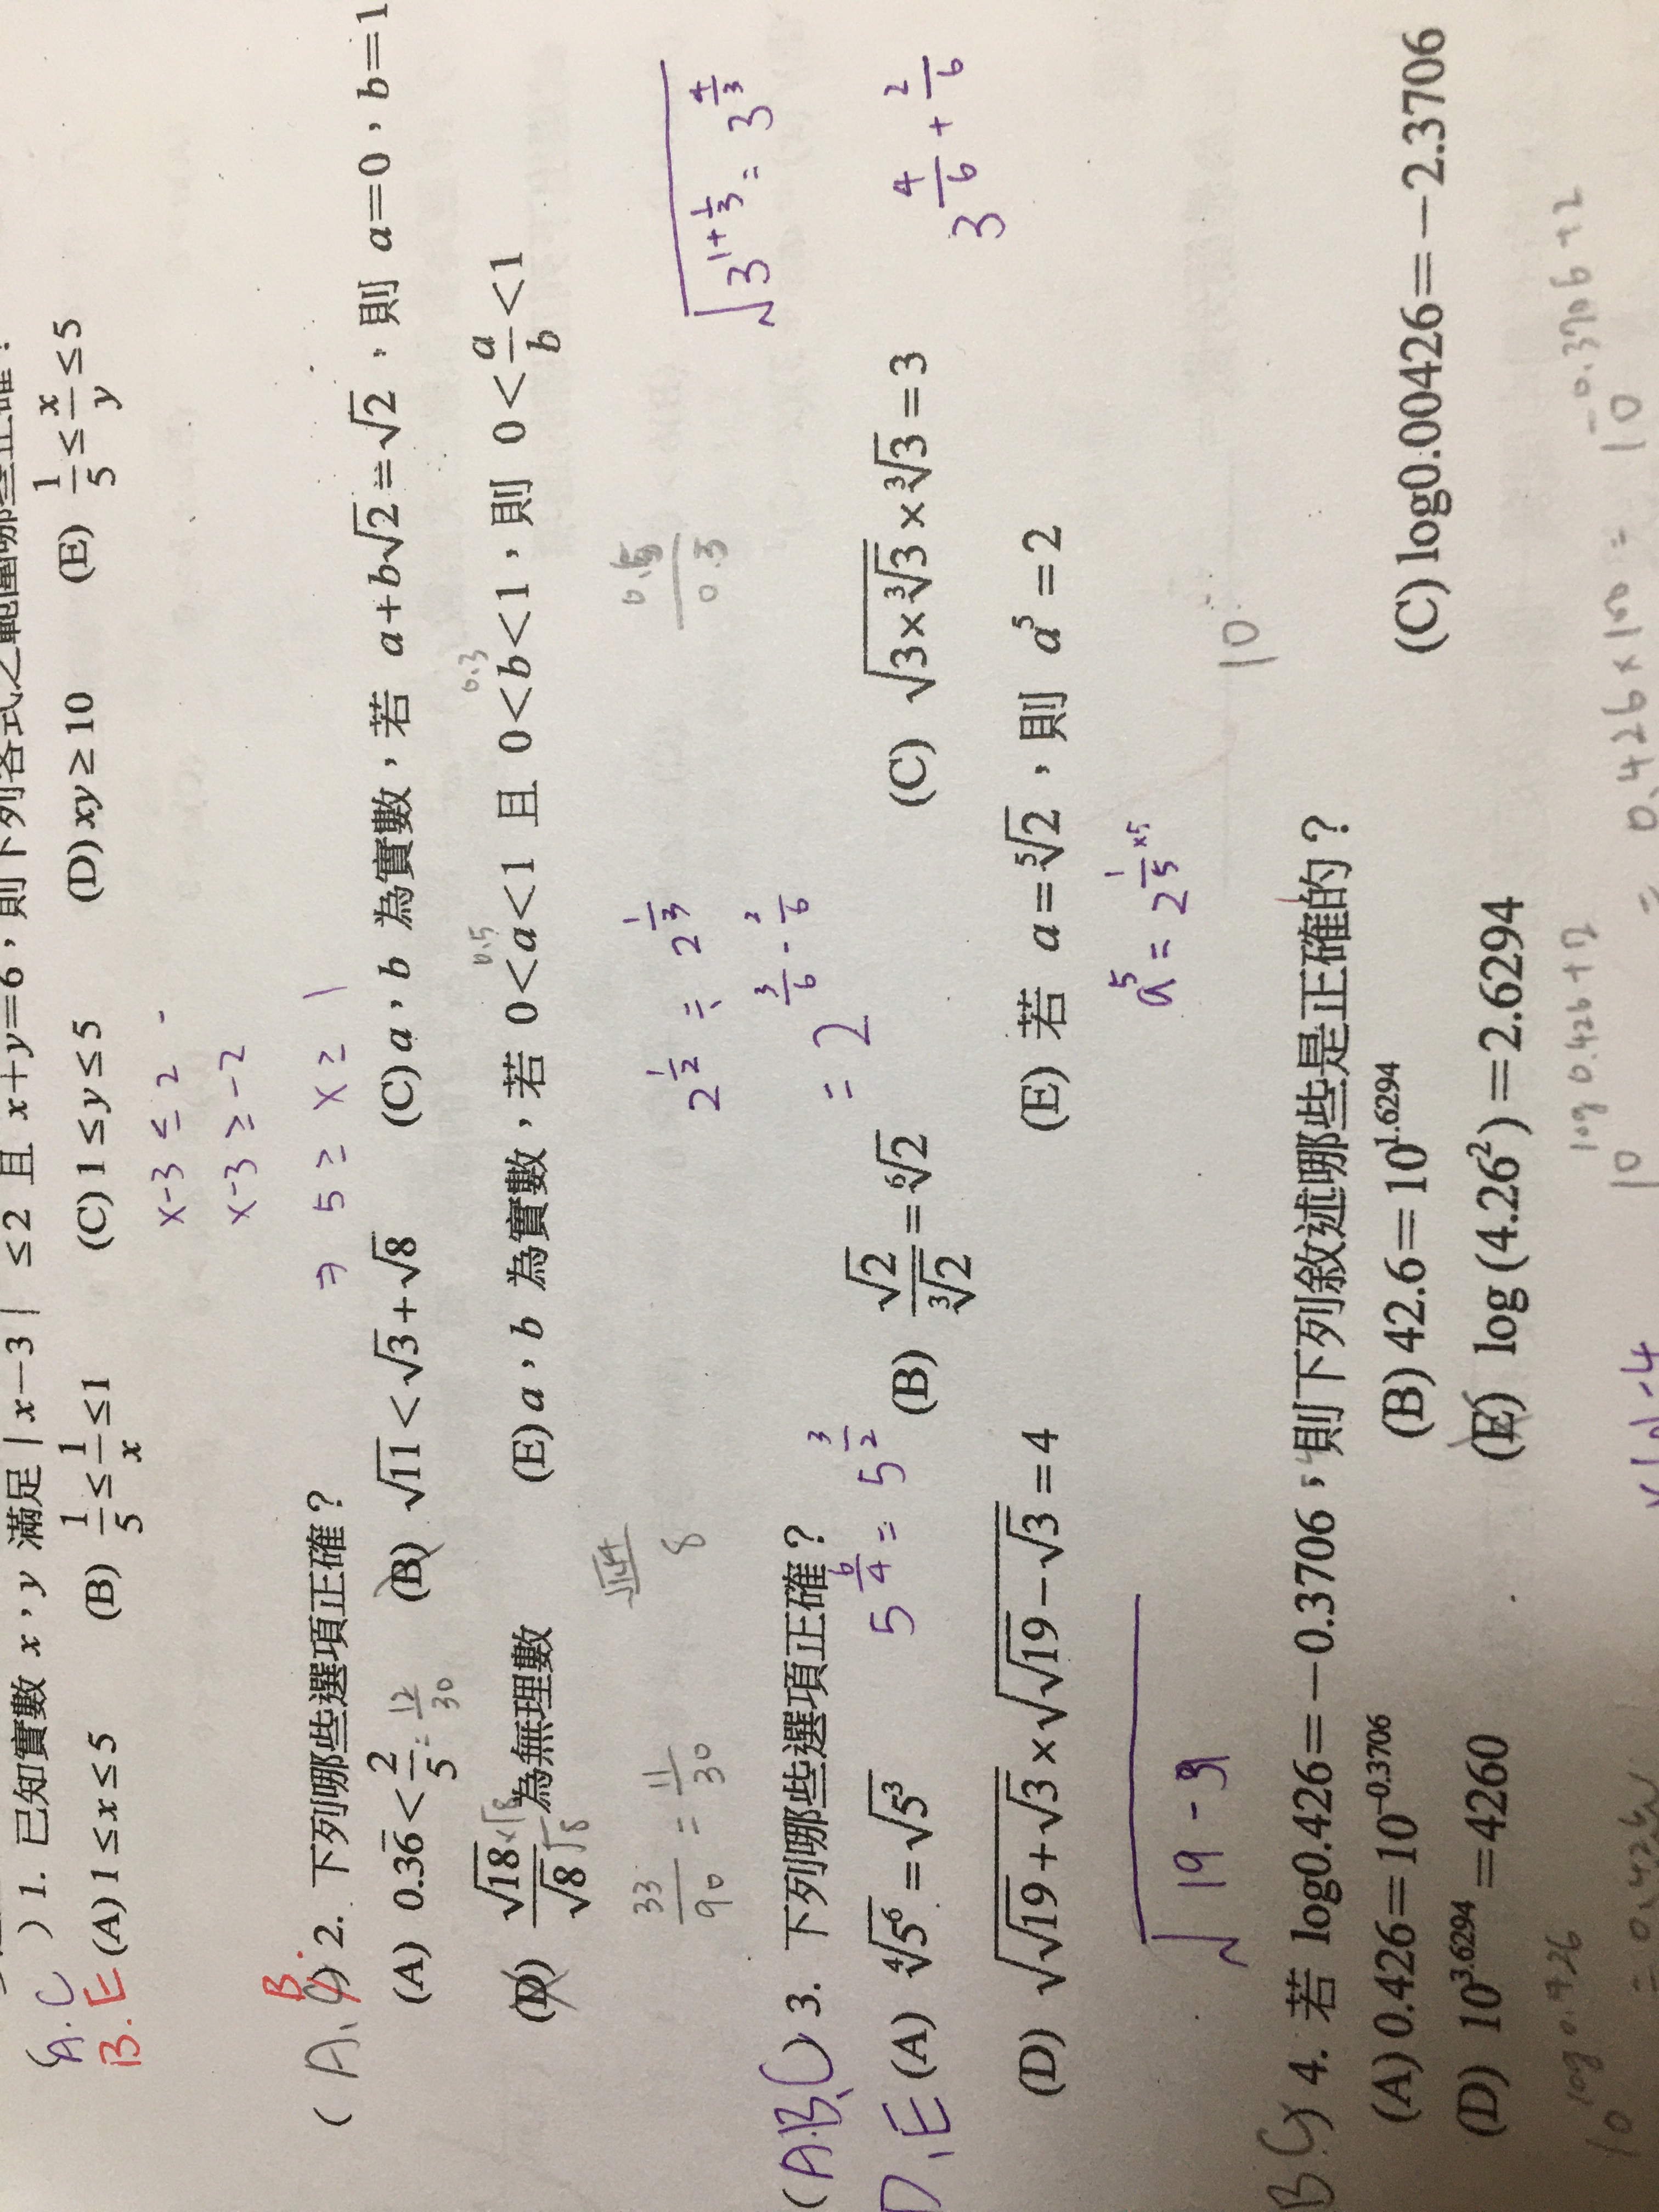 A.C ) 1. 已知實數 x，y 滿足 |x−3| ≤2 且 x+y=6，則下列各式之範圍哪些正確？
B.E (A) 1≤x≤5 (B) 1/5≤1/x≤1 (C) 1≤y≤5 (D) xy≥10 (E) 1/5≤x/y≤5
x-3 ≤ 2
x-3 ≥ -2
⇒ 5 ≥ x ≥ 1
B
( A, C ) 2. 下列哪些選項正確？
(A) 0.36̅<2/5 = 12/30 (B) √11<√3+√8 (C) a，b 為實數，若 a+b√2=√2，則 a=0，b=1
0.5 0.3
(D) √18/√8 為無理數 (E) a，b 為實數，若 0<a<1 且 0<b<1，則 0<a/b<1
×√8
√8
33/90 = 11/30
√144/8
0.5/0.3
2^(1/2) ÷ 2^(1/3)
= 2^(3/6 - 2/6)
√(3^(1+1/3)) = 3^(4/3)
( A.B.C ) 3. 下列哪些選項正確？
5^(6/4) = 5^(3/2)
D,E (A) ⁴√5⁶=√5³ (B) √2/³√2=⁶√2 (C) √(3×³√3)×³√3=3
3^(4/6 + 2/6)
(D) √(√19+√3)×√(√19−√3)=4 (E) 若 a=⁵√2，則 a⁵=2
√(19-3)
a⁵ = 2^(1/5 ×5)
10
B C ) 4. 若 log0.426=−0.3706，則下列敘述哪些是正確的？
(A) 0.426=10^−0.3706 (B) 42.6=10^1.6294 (C) log0.00426=−2.3706
(D) 10^3.6294=4260 (E) log (4.26²)=2.6294
10^(log 0.426)
= 0.426
10^(log 0.426 + 2)
= 0.426×100 = 10^(-0.3706+2)